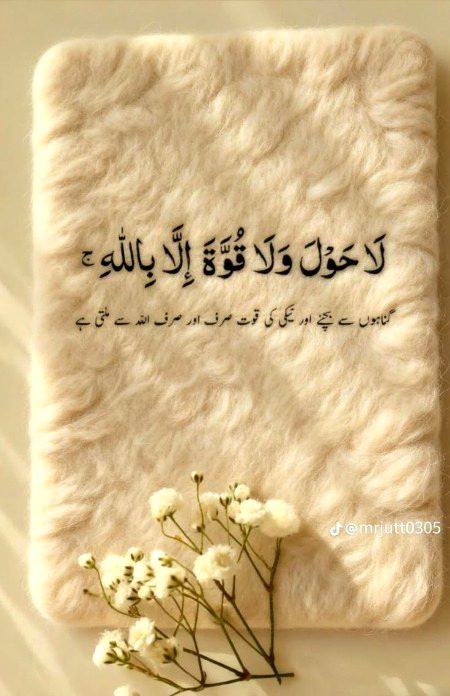 لَا حَوْلَ وَلَا قُوَّةَ إِلَّا بِاللّٰهِ ۚ
گناہوں سے بچنے اور نیکی کی قوت صرف اور صرف اللہ سے ملتی ہے
@mrjutt0305